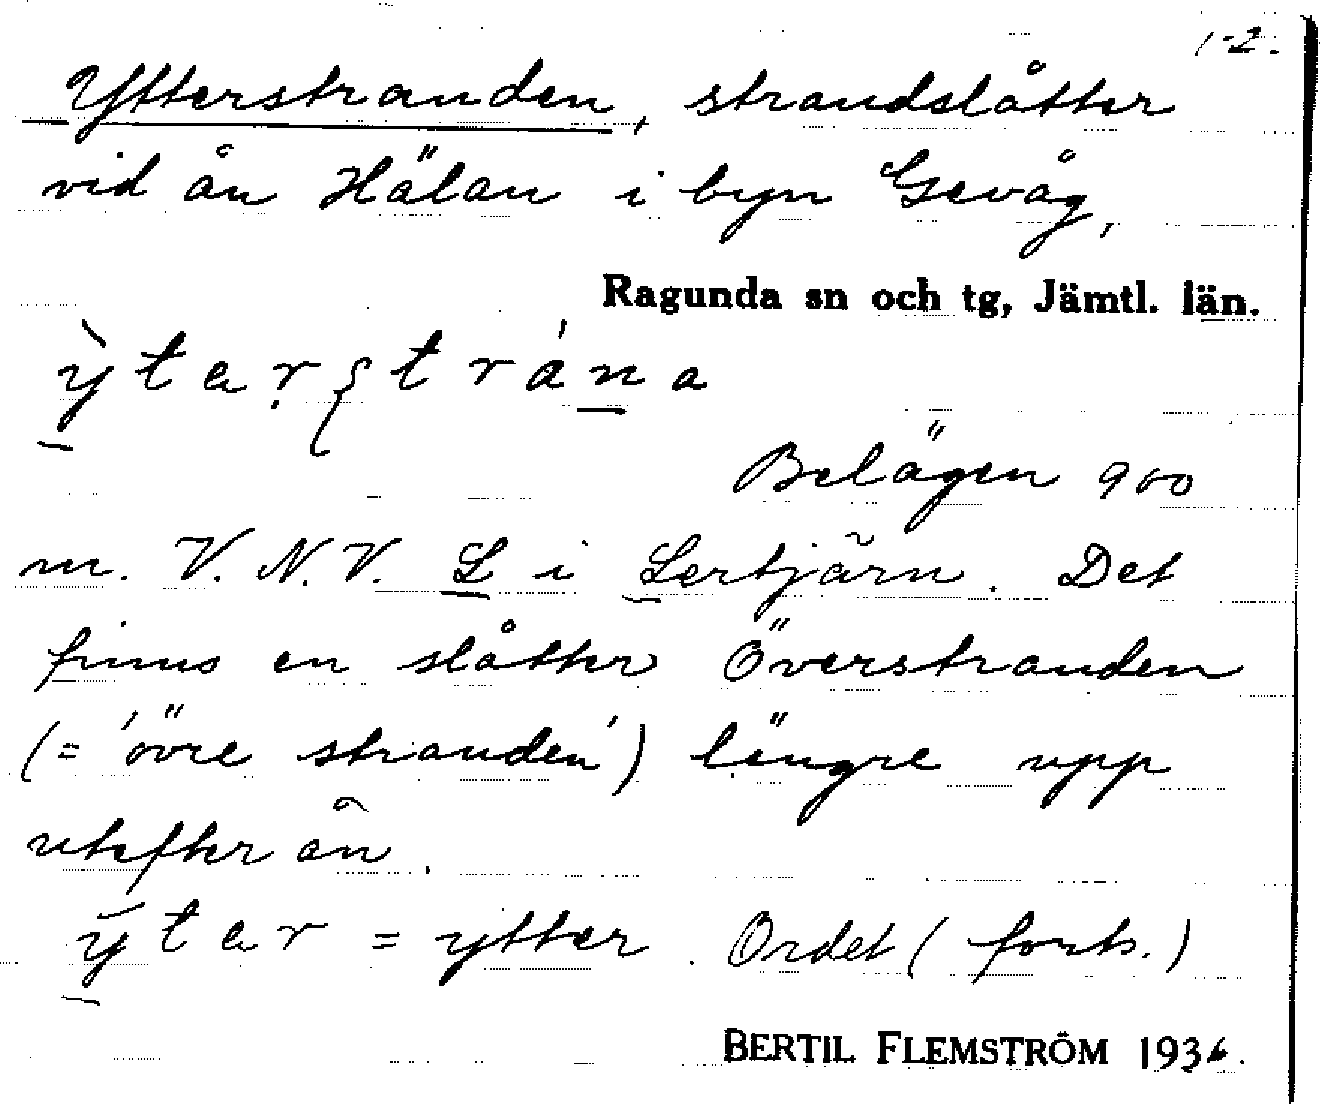 1-2.
Ytterstranden, strandslåtter
vid ån Hälan i byn Gevåg,
Ragunda sn och tg, Jämtl. län.
Belägen 900
m. V.N.V. L i Lertjärn. Det
finns en slåtter Överstranden
(= 'övre stranden') längre upp
utefter ån.
= ytter. Ordet (forts.)
BERTIL FLEMSTRÖM 1936.